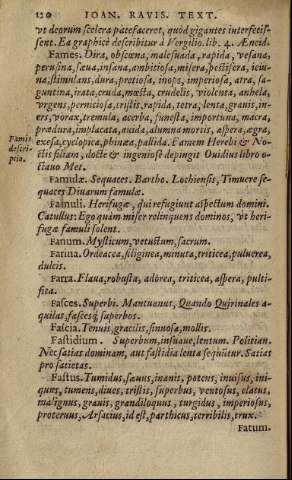 120 IOAN. RAVIS. TEXT.
vt deorum scelera patefaceret, quòd gigantes interfetis-
sent. Ea graphicè describitur à Vergilio. lib. 4. Æneid.
Fames. Dira, obscœna, malesuada, rapida, vesana,
perusina, sæua, insana, ambitiosa, misera, pestifera, ieiu-
na, stimulans, dura, protiosa, inops, imperiosa, atra, sa-
guntina, irata, cruda, mœsta, crudelis, violenta, anhela,
vrgens, perniciosa, tristis, rapida, tetra, lenta, grauis, in-
ers, vorax, tremula, acerba, funesta, importuna, macra,
prædura, implacata, auida, alumna mortis, aspera, ægra,
exesa, cyclopica, phinæa, pallida. Famem Herebi & No-
Famis
descri-
ptio.
ctis filiam, doctè & ingeniosè depingit Ouidius libro o-
ctauo Met.
Famulæ. Sequaces. Bartho. Lochiensis, Timuere se-
quaces Diuarum famulæ.
Famuli. Herifugæ, qui refugiunt aspectum domini.
Catullus: Ego quàm miser relinquens dominos, vt heri-
fugæ famuli solent.
Fanum. Mysticum, vetustum, sacrum.
Farina. Ordeacea, siliginea, minuta, triticea, puluerea,
dulcis.
Farra. Flaua, robusta, adórea, triticea, aspera, pulti-
fica.
Fasces. Superbi. Mantuanus, Quando Quirinales a-
quilas, fascesq; superbos.
Fascia. Tenuis, gracilis, sinuosa, mollis.
Fastidium. Superbum, insuaue, lentum. Politian.
Nec satias dominam, aut fastidia lenta sequũtur. Satias
pro satietas.
Fastus. Tumidus, sæuus, inanis, potens, inuisus, ini-
quus, tumens, diues, tristis, superbus, ventosus, elatus,
malignus, grauis, grandiloquus, turgidus, imperiosus,
proteruus, Arsacius, id est, parthicus, terribilis, trux.
Fatum.